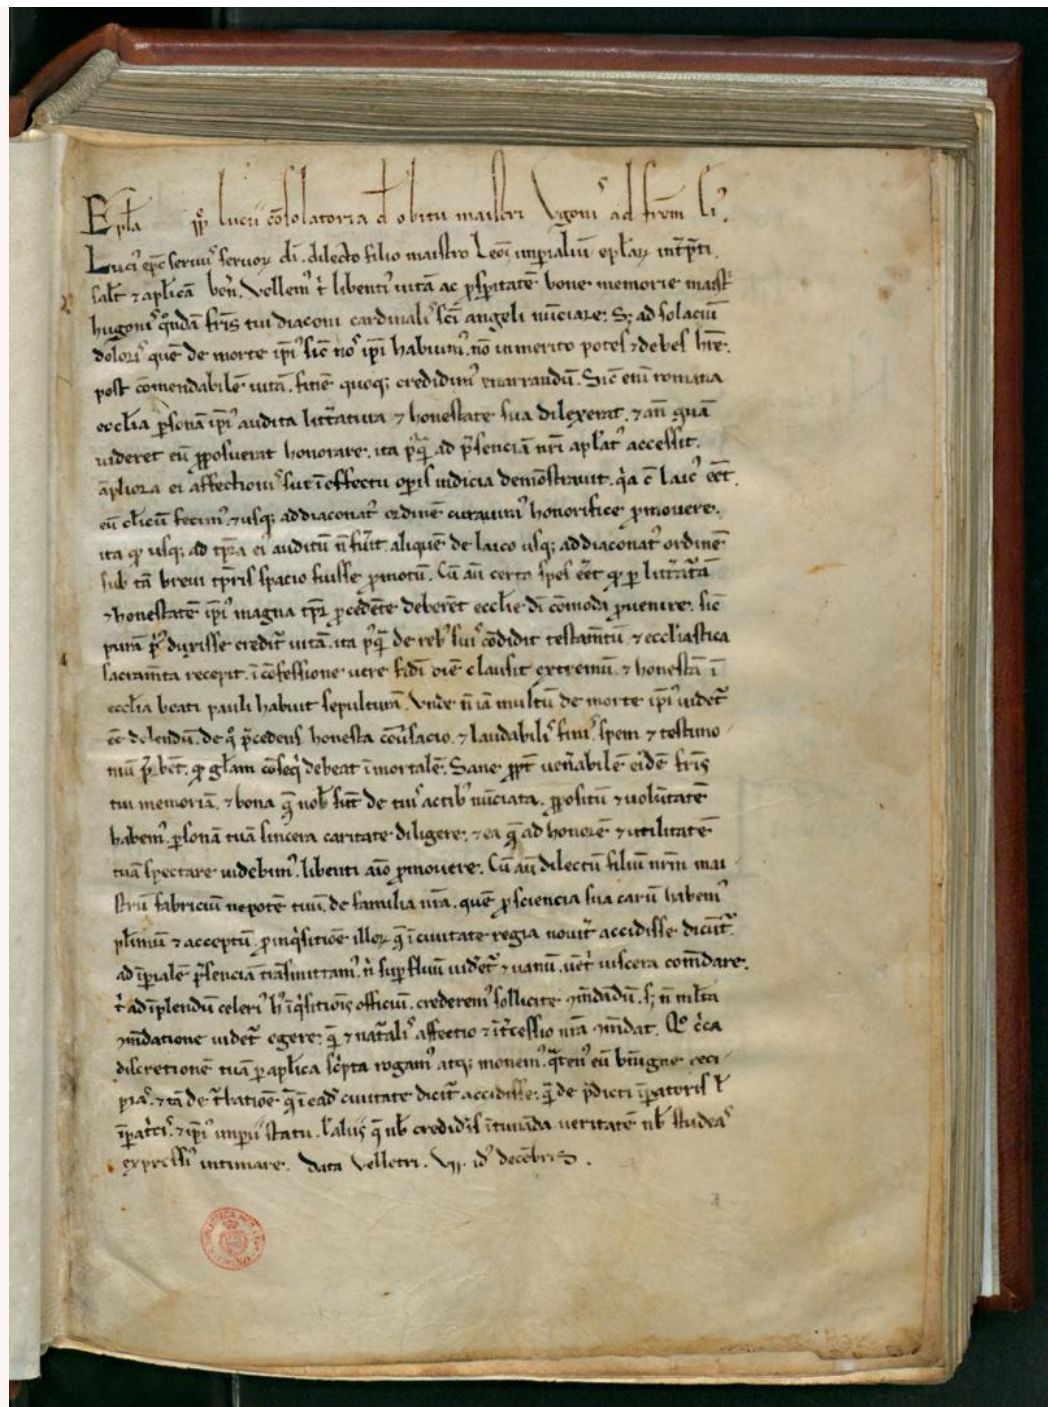 Ep̅la pp̅ lucii co̅solatoria d̅ obitu maistri Vgonis ad frem̅ sui.
Luci᾿ ep̅c seruus seruoꝝ di̅. dilecto filio maistro Leoni imperialiu̅ ep̅laꝝ int̅p̅ti.
salt̅ ⁊ aplica̅ ben̅. Vellem᾿ t̅ libenti᾿ uita̅ ac ꝓsꝑitate̅ bone memorie maist̅
hugonis q̊nda̅ fris̅ tui diaconi cardinalis sci̅ angeli nu̅ciare; Sꝫ ad solaciu̅
doloris que̅ de morte ip̅i᾿ sic̅ nos ip̅i habuim᾿. no̅ inmerito potes ⁊ debes hr̅e.
post co̅mendabile̅ uita̅. fine̅ quoqꝫ credidim᾿ enarrandu̅. Sic̅ eni̅ romana
eccl̅ia ꝑsona̅ ip̅i᾿ audita litt̅atura ⁊ honestate sua dilexerat. ⁊ an̅ qua̅
uideret eu̅ ꝓposuerat honorare. ita p᾿q̅ ad p̅sencia̅ nr̅i apl̅at᾿ accessit.
a̅pliora ei affectionis sue i̅ effectu oꝑis indicia demo̅strauit. q̇a c̅ laic᾿ eet̅.
eu̅ cl̅icu̅ fecim᾿. ⁊ usqꝫ ad diaconat᾿ ordine̅ curauim᾿ honorifice ꝓmouere.
ita qd̅ usqꝫ ad tp̅ra ei᾿ auditu̅ n̅ fu̅it. alique̅ de laico usqꝫ ad diaconat᾿ ordine̅
sub ta̅ breui tp̅ris spacio fuisse ꝓmotu̅. Cu̅ au̅ certa spes ee̅t qd̅ ꝑ litt̅at᾿a̅
⁊ honestate̅ ip̅i᾿ magna tp̅r ꝓcede̅te debere̅t eccl̅ie di̅ co̅moda ꝓuenire. sic̅
pura̅ p᾿ duxisse credit᾿ uita̅. ita p᾿q̅ de reb᾿ suis co̅didit testam̅tu̅ ⁊ eccl̅iastica
sacram̅ta recepit. i̅ co̅fessione uere fidi̅ die̅ clausit extremu̅. ⁊ honesta̅ i̅
eccl̅ia beati pauli habuit sepultura̅. Vnde n̅ ia̅ multu̅ de morte ip̅i᾿ uidet᾿
ee̅ dolendu̅. de q̊ p̅cedens honesta co̅u̅sacio. ⁊ laudabilis finis. spem ⁊ testimo
niu̅ p̅bet. qd̅ gl̅am co̅seq̇ debeat i̅mortale̅. Sane ꝓpt̅ uen̅abile̅ eide̅ fris̅
tui memoria̅. ⁊ bona q̅ nob̅ su̅t de tuis actib᾿ nu̅ciata. ꝓpositu̅ ⁊ uolu̅tate̅
habem᾿. ꝑsona̅ tua̅ sincera caritate diligere. ⁊ ea q̅ ad honore̅ ⁊ utilitate̅
tua̅ spectare uidebim᾿. libenti ai̅o ꝓmouere. Cu̅ au̅ dilectu̅ filiu̅ nr̅m mai
stru̅ fabriciu̅ nepote̅ tuu̅. de familia nr̅a. que̅ ꝓ sciencia sua caru̅ habem᾿
pl̅imu̅ ⁊ acceptu̅. ꝓ inq̇sitio̅e illoꝝ q̅ i̅ ciuitate regia nouit᾿ accidisse dicu̅t᾿.
ad i̅ꝑiale̅ p̅sencia̅ tra̅smittam᾿. n̅ suꝑfluu̅ uidet᾿ ⁊ uanu̅. uet̅ uiscera com̅dare.
t̅ ad i̅plendu̅ celeri᾿ h᾿ i̅q̇sitionis officiu̅. crederem᾿ sollicite ꝯm̅dadu̅. sꝫ n̅ ml̅ta
ꝯm̅datione uidet᾿ egere; q̅ ⁊ nat᾿alis affectio ⁊ i̅t᾿cessio nr̅a ꝯm̅dat. Qo̅ c̅ca
discretione̅ tua̅ ꝑ aplica sc᾿pta rogam᾿ atqꝫ monem᾿. q̅ten᾿ eu̅ beni̅gne reci
pias. ⁊ ta̅ de t᾿batio̅e q̅ i̅ ead᾿ ciuitate dicit᾿ accidisse; q̅ de p̅dicti i̅ꝑatoris l̅
i̅ꝑat᾿cis. ⁊ ip̅i᾿ imperii statu. l̅ aliis q̅ nb̅ credid̅is i̅timada ueritate̅ nb̅ studeas
expressi᾿ intimare. Data Velletri. Vii. id᾿ dece̅bris.